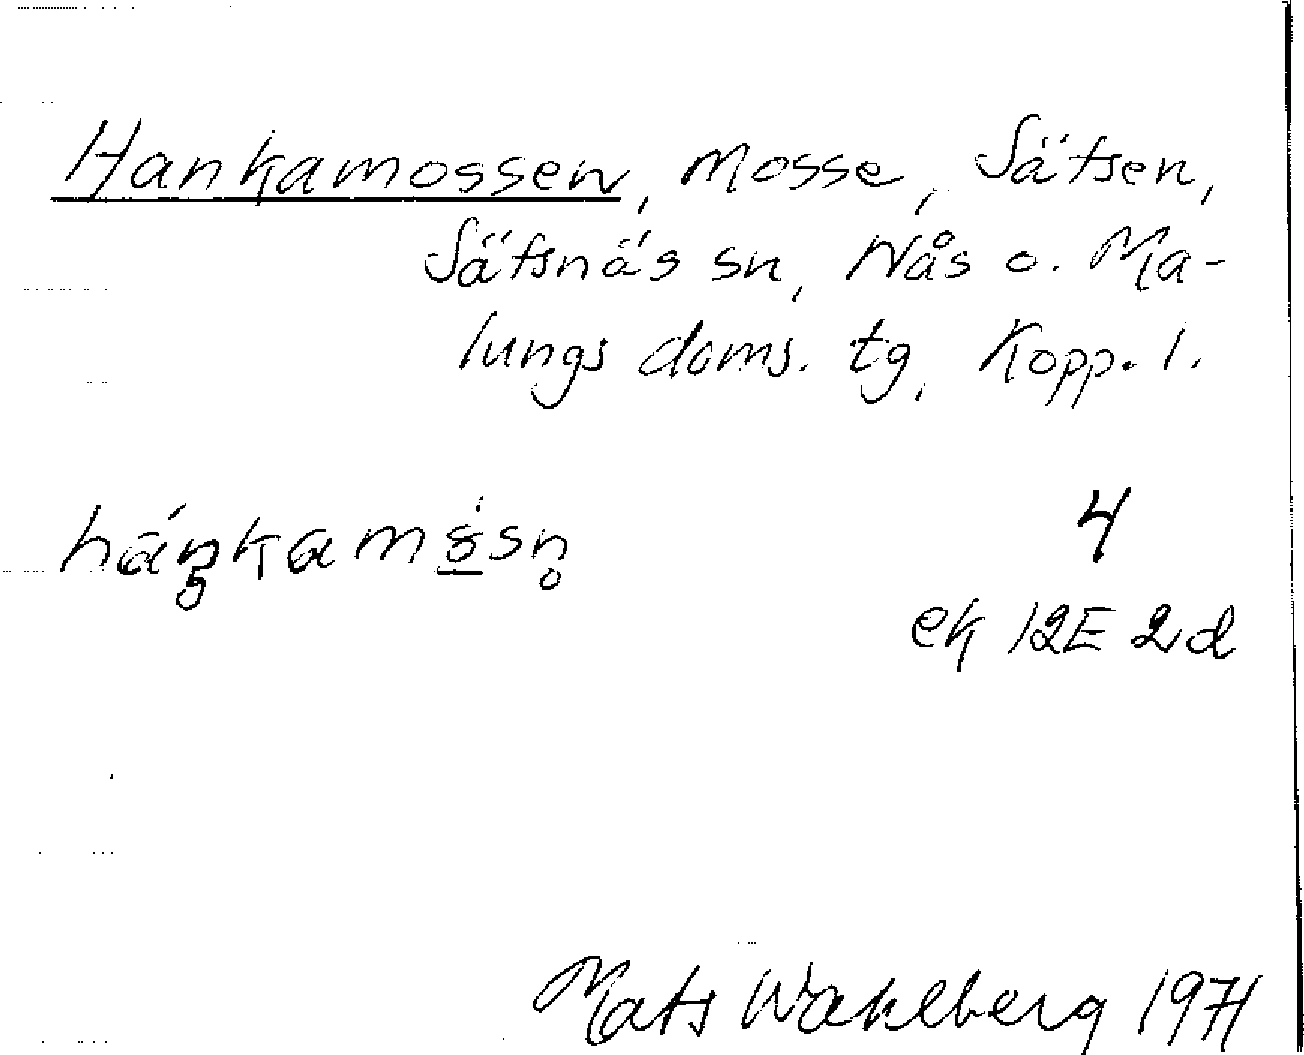 Hankamossen, mosse, Sätsen,
Sätsnäs sn, Nås o. Ma-
lungs doms. tg, Kopp. l.
háŋkamò̱sn̥
4
ek 12E 2d
Mats Wahlberg 1971